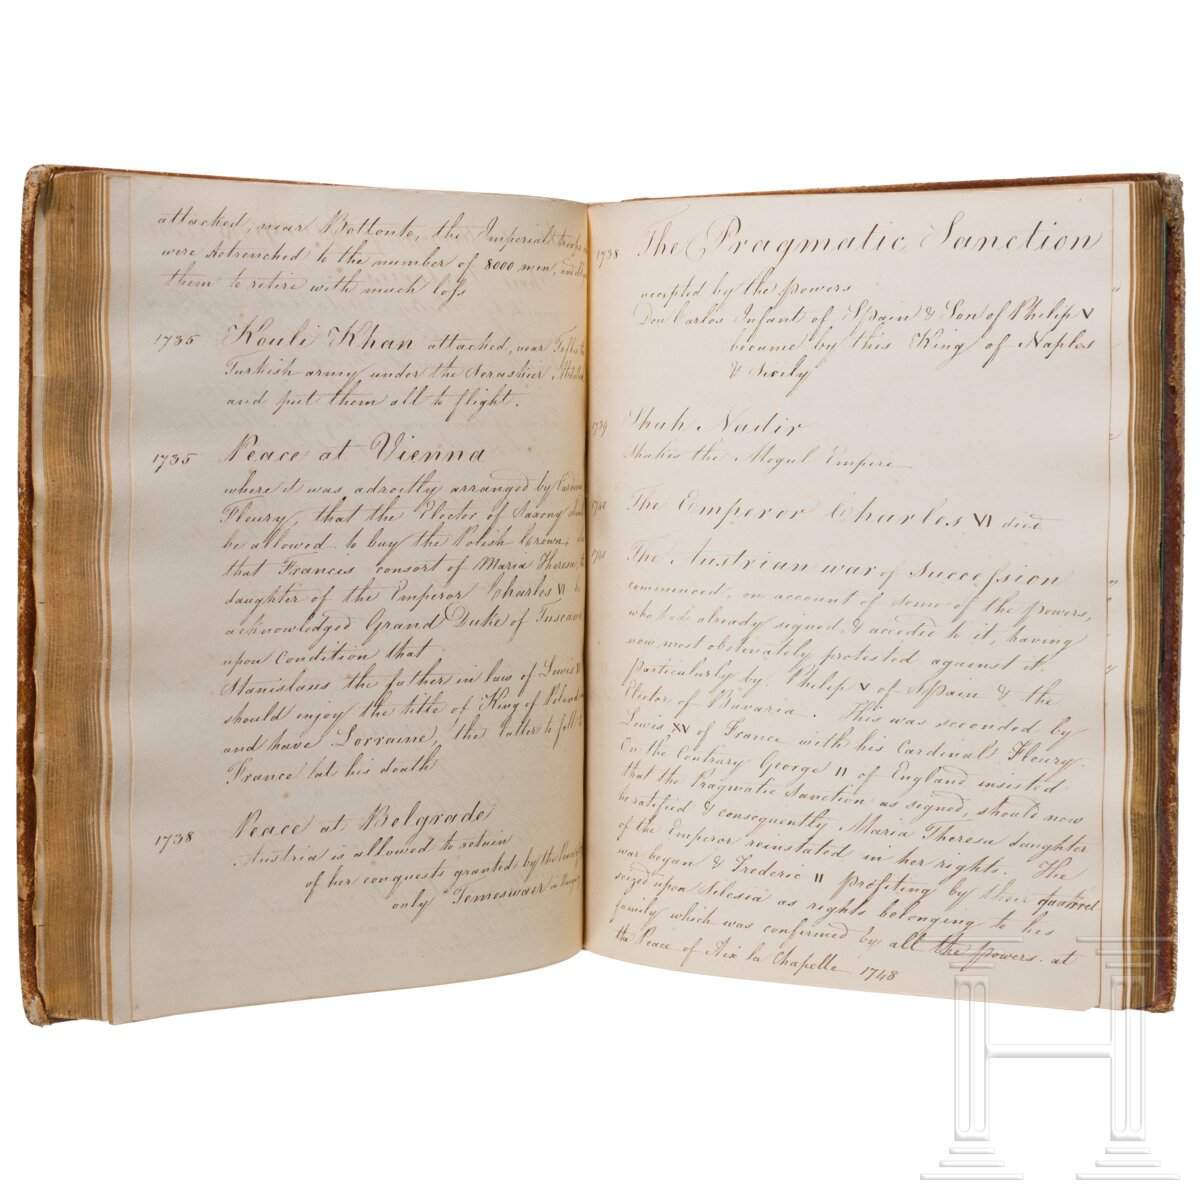 attached, near Bottonto, the Imperial troops
were retrenched to the number of 8000 men, and
them to retire with much loss
1735 Kouli Khan attacked, near Tefflis the
Turkish army under the Seraskier
and put them all to flight.
1735 Peace at Vienna
where it was adroitly arranged by Cardinal
Fleury, that the Elector of Saxony
be allowed to buy the Polish Crown,
that Francis consort of Maria Theresa, the
daughter of the Emperor Charles VI be
acknowledged Grand Duke of Tuscany
upon Condition that
Stanislaus the father in law of Lewis
should enjoy the title of King of Poland
and have Lorraine, the latter to fall to
France at his death
1738 Peace at Belgrade
Austria is allowed to retain
of her conquests granted by the Peace of
only Temeswaer in Hungary
1738 The Pragmatic Sanction
accepted by the powers
Don Carlos Infant of Spain & Son of Philip V
became by this King of Naples
& Sicily
1739 Shah Nadir
Shakes the Mogul Empire
1740 The Emperor Charles VI died
1740 The Austrian war of Succession
commenced, on account of some of the powers,
who had already signed & acceded to it, having
now most obstinately protested against it.
particularly by Philip V of Spain & the
Elector of Bavaria. This was seconded by
Lewis XV of France with his Cardinal Fleury.
On the Contrary George II of England insisted
that the Pragmatic Sanction as signed, should now
be ratified & consequently Maria Theresa daughter
of the Emperor reinstated in her rights. The
war began & Frederic II profiting by their quarrel
seized upon Silesia as rights belonging to his
family which was confirmed by all the powers at
the Peace of Aix la Chapelle 1748
H